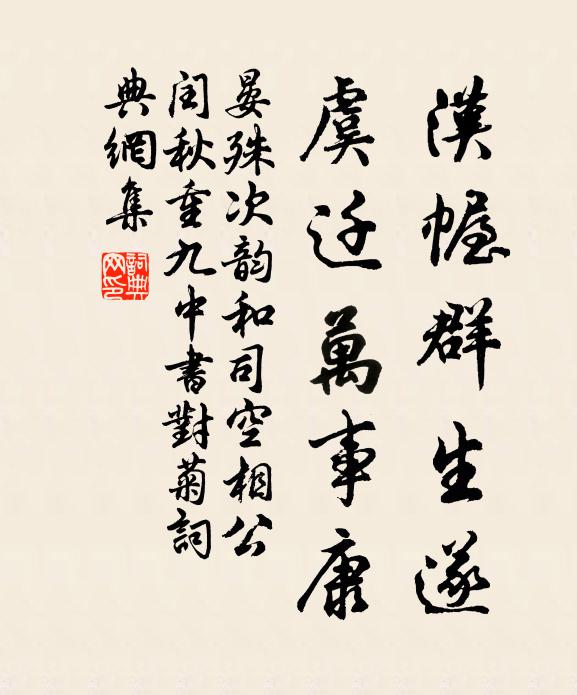 漢幄群生遂
虞迁萬事康
晏殊次韵和司空相公
闰秋重九中書對菊詞
典網集
詞典网印